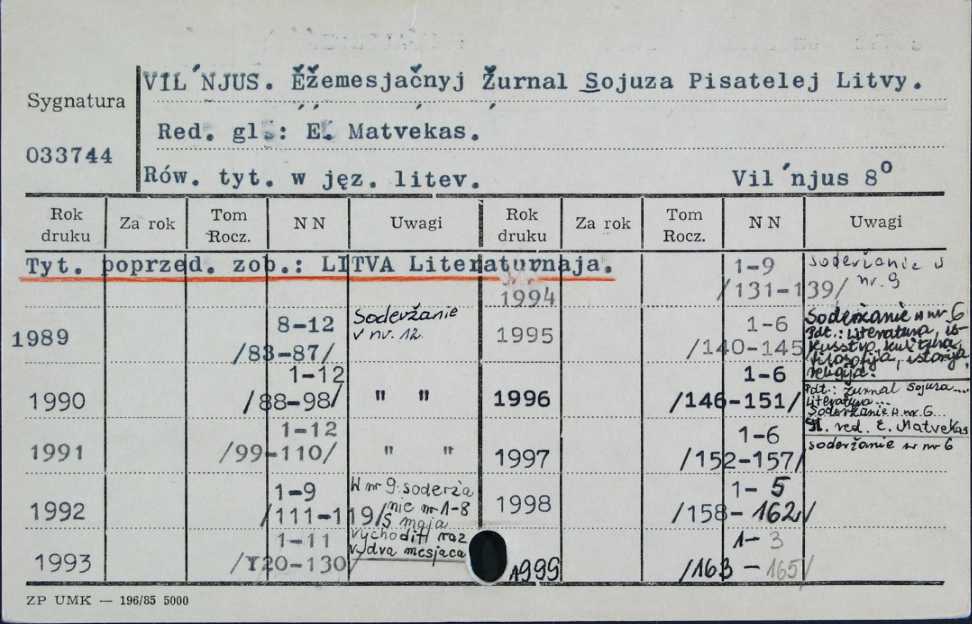 VIL´NJUS. Ėžemesjačnyj Žurnal Sojuza Pisatelej Litvy.
Sygnatura
Red. gl.: E. Matvekas.
033744
Rów. tyt. w jęz. litev. Vil´njus 8°
Rok druku Za rok Tom Rocz. NN Uwagi Rok druku Za rok Tom Rocz. NN Uwagi
Tyt. poprzed. zob.: LITVA Literaturnaja.
1994 1-9 /131-139/ soderžanie v nr. 9
1989 8-12 /83-87/ Soderžanie v nr. 12
1995 1-6 /140-145/ Soderžanie w nr 6
Pdt.: Literatura, is-
kusstvo, kul'tura,
filosofija, istorija,
religija.
1990 1-12 /88-98/ " "
1996 1-6 /146-151/ Pdt.: žurnal Sojuza...
Literatura...
Soderžanie w nr. 6...
Gl. red. E. Matvekas
1991 1-12 /99-110/ " "
1997 1-6 /152-157/ soderžanie w nr 6
1992 1-9 /111-119/ W nr 9 soderža
nie nr 1-8
S maja
vychodit raz
v dva mesjaca
1998 1-5 /158-162/
1993 1-11 /120-130/
1999 1-3 /163-165/
ZP UMK — 196/85 5000